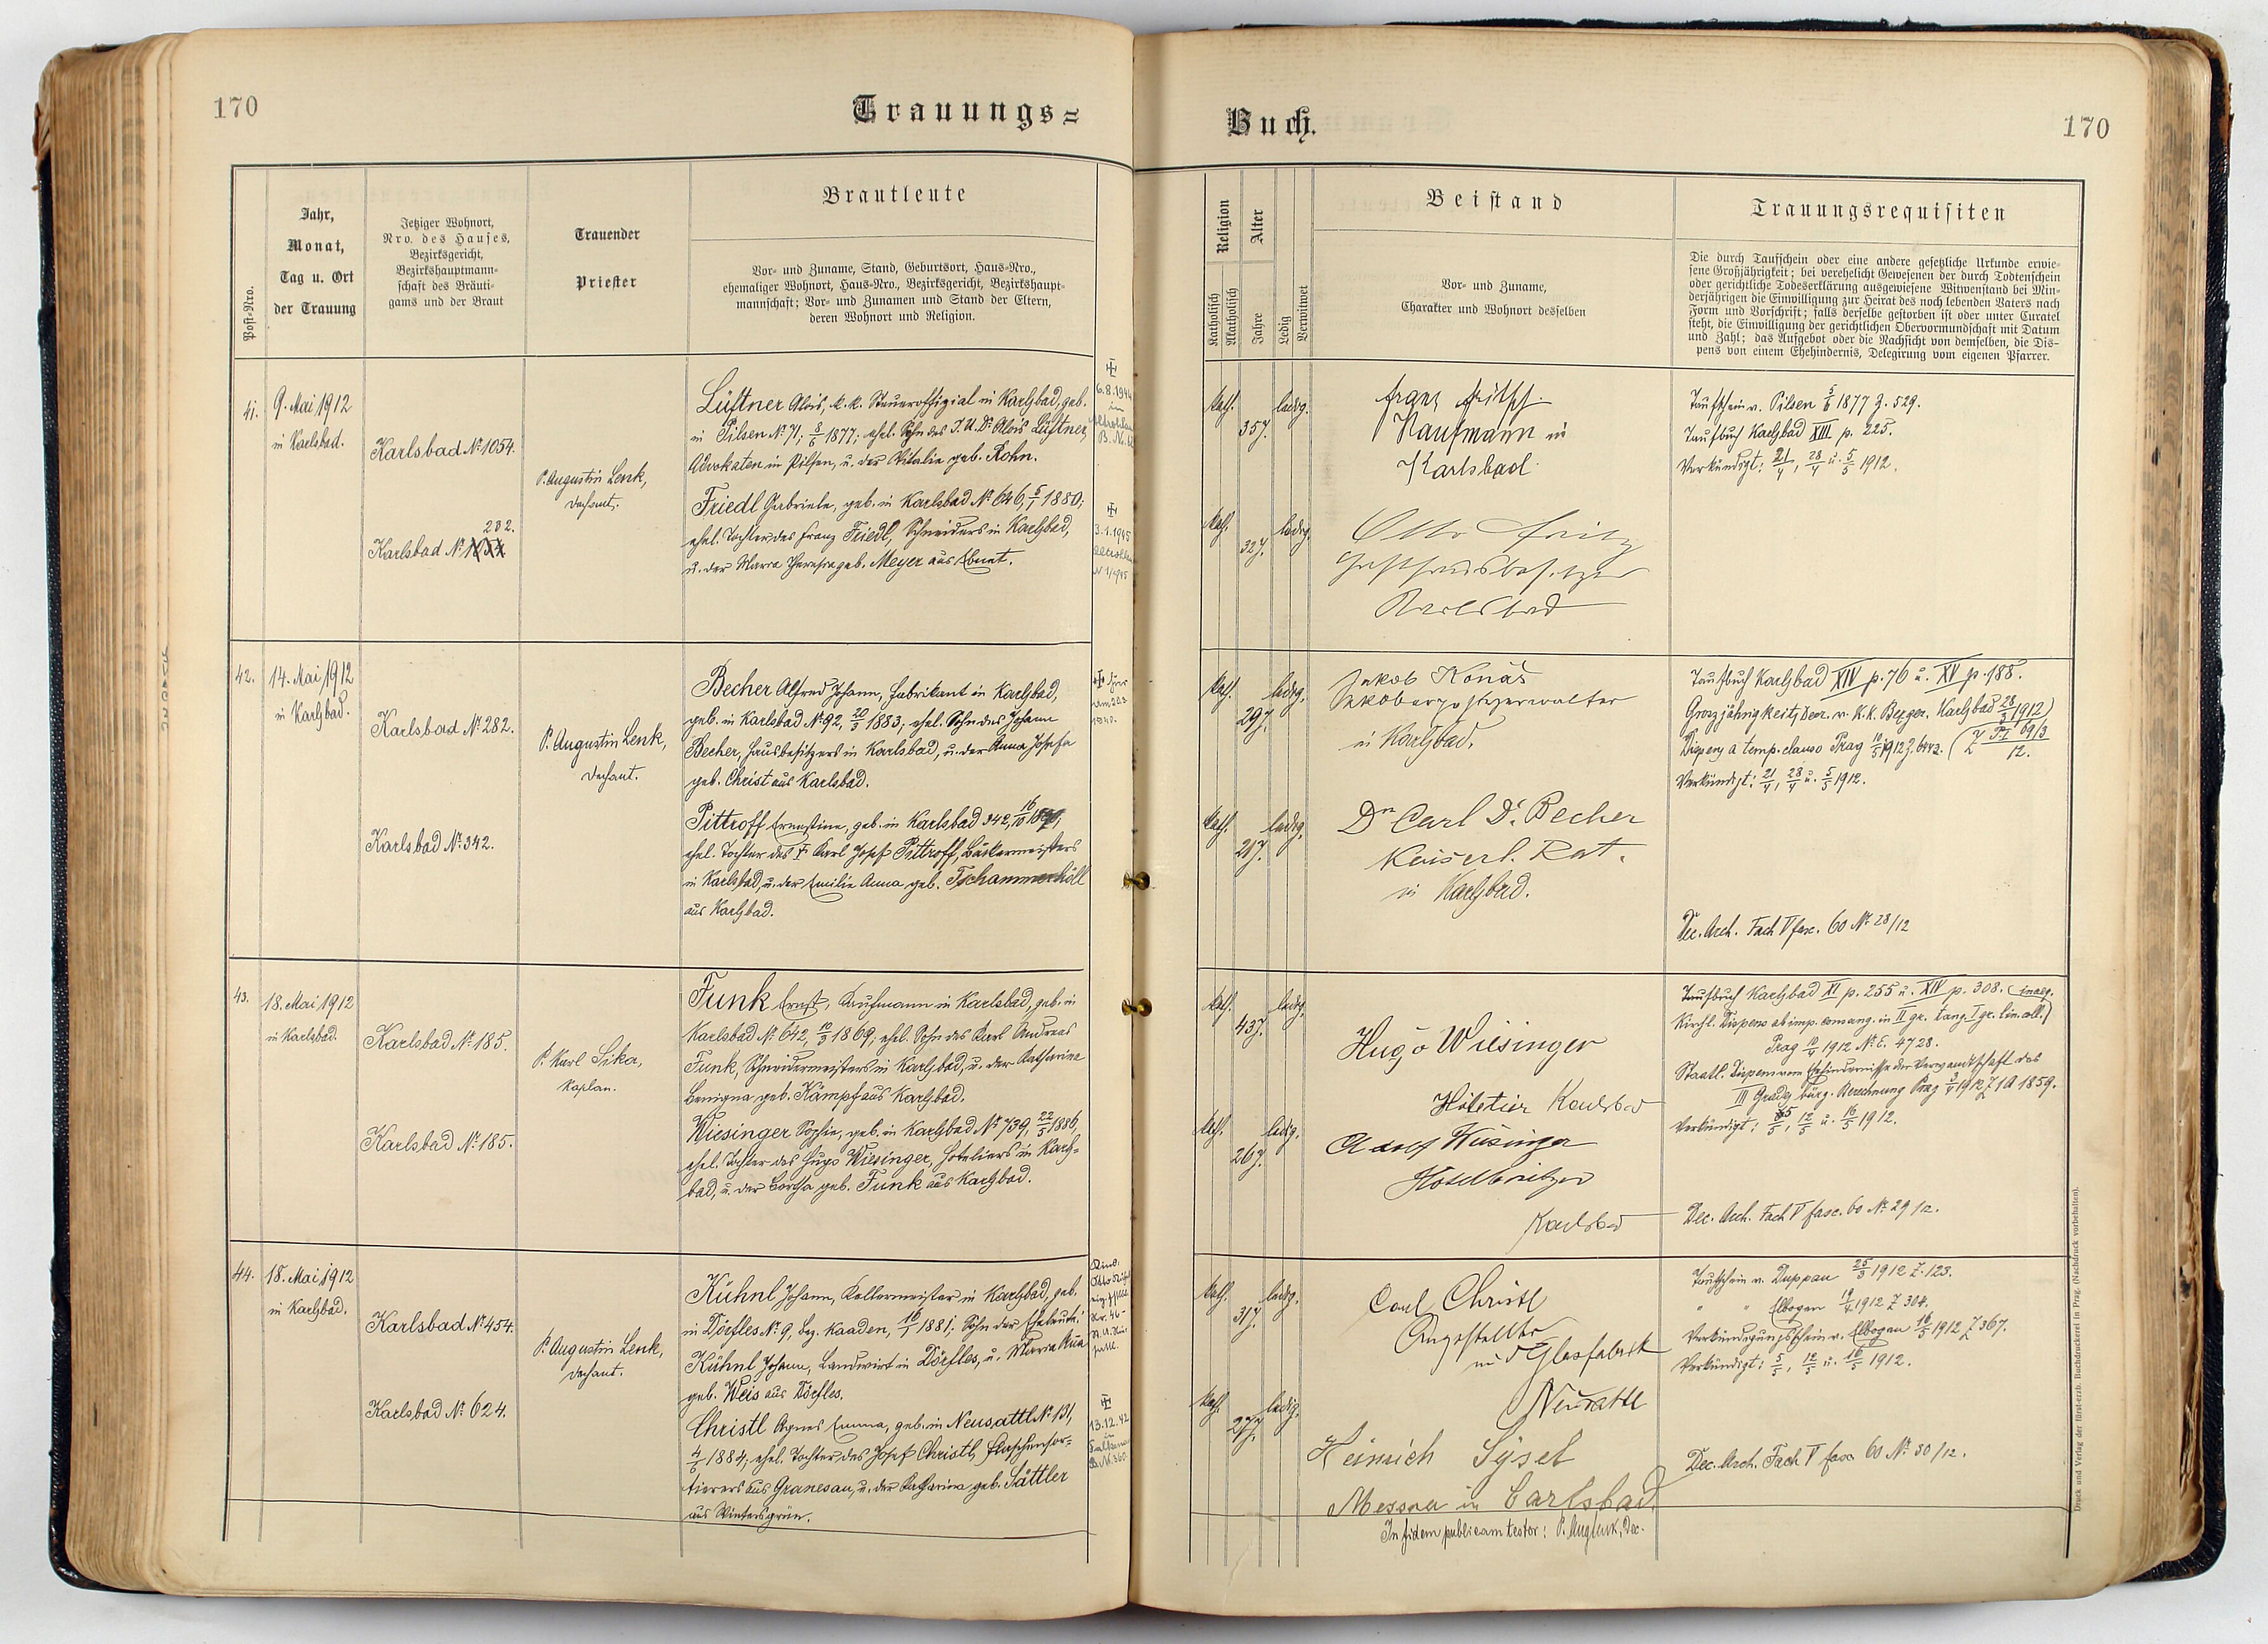 170
Trauungs=
Post-Nro.
Jahr,
Monat,
Tag u. Ort
der Trauung
Jetziger Wohnort,
Nro. des Hauses,
Bezirksgericht,
Bezirkshauptmann=
schaft des Bräuti=
gams und der Braut
Trauender
Priester
Brautleute
Vor= und Zuname, Stand, Geburtsort, Haus=Nro.,
ehemaliger Wohnort, Haus=Nro., Bezirksgericht, Bezirkshaupt=
mannschaft; Vor= und Zunamen und Stand der Eltern,
deren Wohnort und Religion.
41.
9. Mai 1912
in Karlsbad.
Karlsbad No 1054.
282.
Karlsbad No
P. Augustin Lenk,
Dechant.
Lüftner Alois, k. k. Steueroffizial in Karlsbad, geb.
in Pilsen No 71, 8/6 1877; ehel. Sohn des J. U. Dr. Alois Lüftner,
Advokaten in Pilsen, u. der Vitalie geb. Rohn.
Friedl Gabriele, geb. in Karlsbad No 646, 5/1 1880;
ehel. Tochter des Franz Friedl, Schneiders in Karlsbad,
u. der Maria Theresia geb. Meyer aus Ebmet.
6.8.1944
in
3.1.1945
42.
14. Mai 1912
in Karlsbad.
Karlsbad No 282.
Karlsbad No 342.
P. Augustin Lenk,
Dechant.
Becher Alfred Johann, Fabrikant in Karlsbad,
geb. in Karlsbad No 92, 20/3 1883; ehel. Sohn des Johann
Becher, Hausbesitzers in Karlsbad, u. der Anna Josefa
geb. Christ aus Karlsbad.
Pittroff Ernestine, geb. in Karlsbad 342, 16/10
ehel. Tochter des † Karl Josef Pittroff, Bäckermeisters
in Karlsbad, u. der Emilie Anna geb. Tschammerhöll
aus Karlsbad.
43.
18. Mai 1912
in Karlsbad.
Karlsbad No 185.
Karlsbad No 185.
P. Karl Sika,
Kaplan.
Funk Ernst, Kaufmann in Karlsbad, geb. in
Karlsbad No 642, 10/3 1869; ehel. Sohn des Karl Andreas
Funk, Schneidermeisters in Karlsbad, u. der Katharina
Benigna geb. Kämpf aus Karlsbad.
Wiesinger Sophie, geb. in Karlsbad No 739, 22/5 1886,
ehel. Tochter des Hugo Wiesinger, Hoteliers in Karls=
bad, u. der Bertha geb. Funk aus Karlsbad.
44.
18. Mai 1912
in Karlsbad.
Karlsbad No 454.
Karlsbad No 624.
P. Augustin Lenk,
Dechant.
Kühnl Johann, Kellermeister in Karlsbad, geb.
in Dörfles No 9, Bez. Kaaden, 16/1 1881; Sohn der Eheleute:
Kühnl Johann, Landwirt in Dörfles, u. Maria Anna
geb. Weis aus Dörfles.
Christl Agnes Emma, geb. in Neusattl No 131,
4/6 1884; ehel. Tochter des Josef Christl, Flaschensor=
tierers aus Granesau, u. der Katharina geb. Sattler
aus Wintersgrün.
13.12.42
in
Falkenau
Buch.
170
Religion
Alter
Katholisch
Akatholisch
Jahre
Ledig
Verwitwet
Beistand
Vor= und Zuname,
Charakter und Wohnort desselben
Trauungsrequisiten
Die durch Taufschein oder eine andere gesetzliche Urkunde erwie=
sene Großjährigkeit; bei verehelicht Gewesenen der durch Todtenschein
oder gerichtliche Todeserklärung ausgewiesene Witwenstand bei Min=
derjährigen die Einwilligung zur Heirat des noch lebenden Vaters nach
Form und Vorschrift; falls derselbe gestorben ist oder unter Curatel
steht, die Einwilligung der gerichtlichen Obervormundschaft mit Datum
und Zahl; das Aufgebot oder die Nachsicht von demselben, die Dis=
pens von einem Ehehindernis, Delegirung vom eigenen Pfarrer.
kath.
35 J.
ledig.
Franz
Kaufmann in
Karlsbad.
kath.
32 J.
ledig.
Otto Fritz
Gasthausbesitzer
Karlsbad
Taufschein v. Pilsen 5/6 1877 Z. 529.
Taufbuch Karlsbad XIII p. 225.
Verkündigt: 21/4, 28/4 u. 5/5 1912.
kath.
29 J.
ledig.
Jakob Konás
in Karlsbad.
kath.
21 J.
ledig.
Dr Carl Dr. Becher
Kaiserl. Rat.
in Karlsbad.
Taufbuch Karlsbad XIV p. 76 u. XV p. 188.
Grosjährigkeits Decr. v. K. K. Bezger. Karlsbad 28/3 1912
Dispens a temp. clauso Prag 10/5 1912 Z.
Verkündigt: 21/4, 28/4 u. 5/5 1912.
Dec. Arch. Fach V fasc. 60 No 28/12
kath.
43 J.
ledig.
Hugo Wiesinger
Hôtelier Karlsbad
kath.
26 J.
ledig.
Adolf Wiesinger
Hotelbesitzer
Karlsbad
Taufbuch Karlsbad XI p. 255 u. XIV p. 308.
Kirchl. Dispens ab imp. consang. in II gr. tang. I gr. lin. coll.)
Prag 10/4 1912 No E. 4728.
Staatl. Dispens vom Ehehindernisse der Verwandtschaft des
III Grades bürg. Berechnung Prag 3/4 1912 Z 1A 1859.
Verkündigt: 5/5, 12/5 u. 16/5 1912.
Dec. Arch. Fach V fasc. 60 No 29/12.
kath.
31 J.
ledig.
Carl Christl
Angestellter
in d Glasfabrik
Neusattl
kath.
27 J.
ledig.
Heinrich Sýsel
Messner in Carlsbad.
In fidem publicam testor: P. Aug Lenk, Dec.
Taufschein v. Duppau 25/3 1912 Z. 123.
" " Elbogen 19/4 1912 Z 304.
Verkündigungsschein v. Elbogen 16/5 1912, Z 367.
Verkündigt: 5/5, 12/5 u. 16/5 1912.
Dec. Arch. Fach V fasc 60 No 30/12.
Druck und Verlag der fürst-erzb. Buchdruckerei in Prag. (Nachdruck vorbehalten).